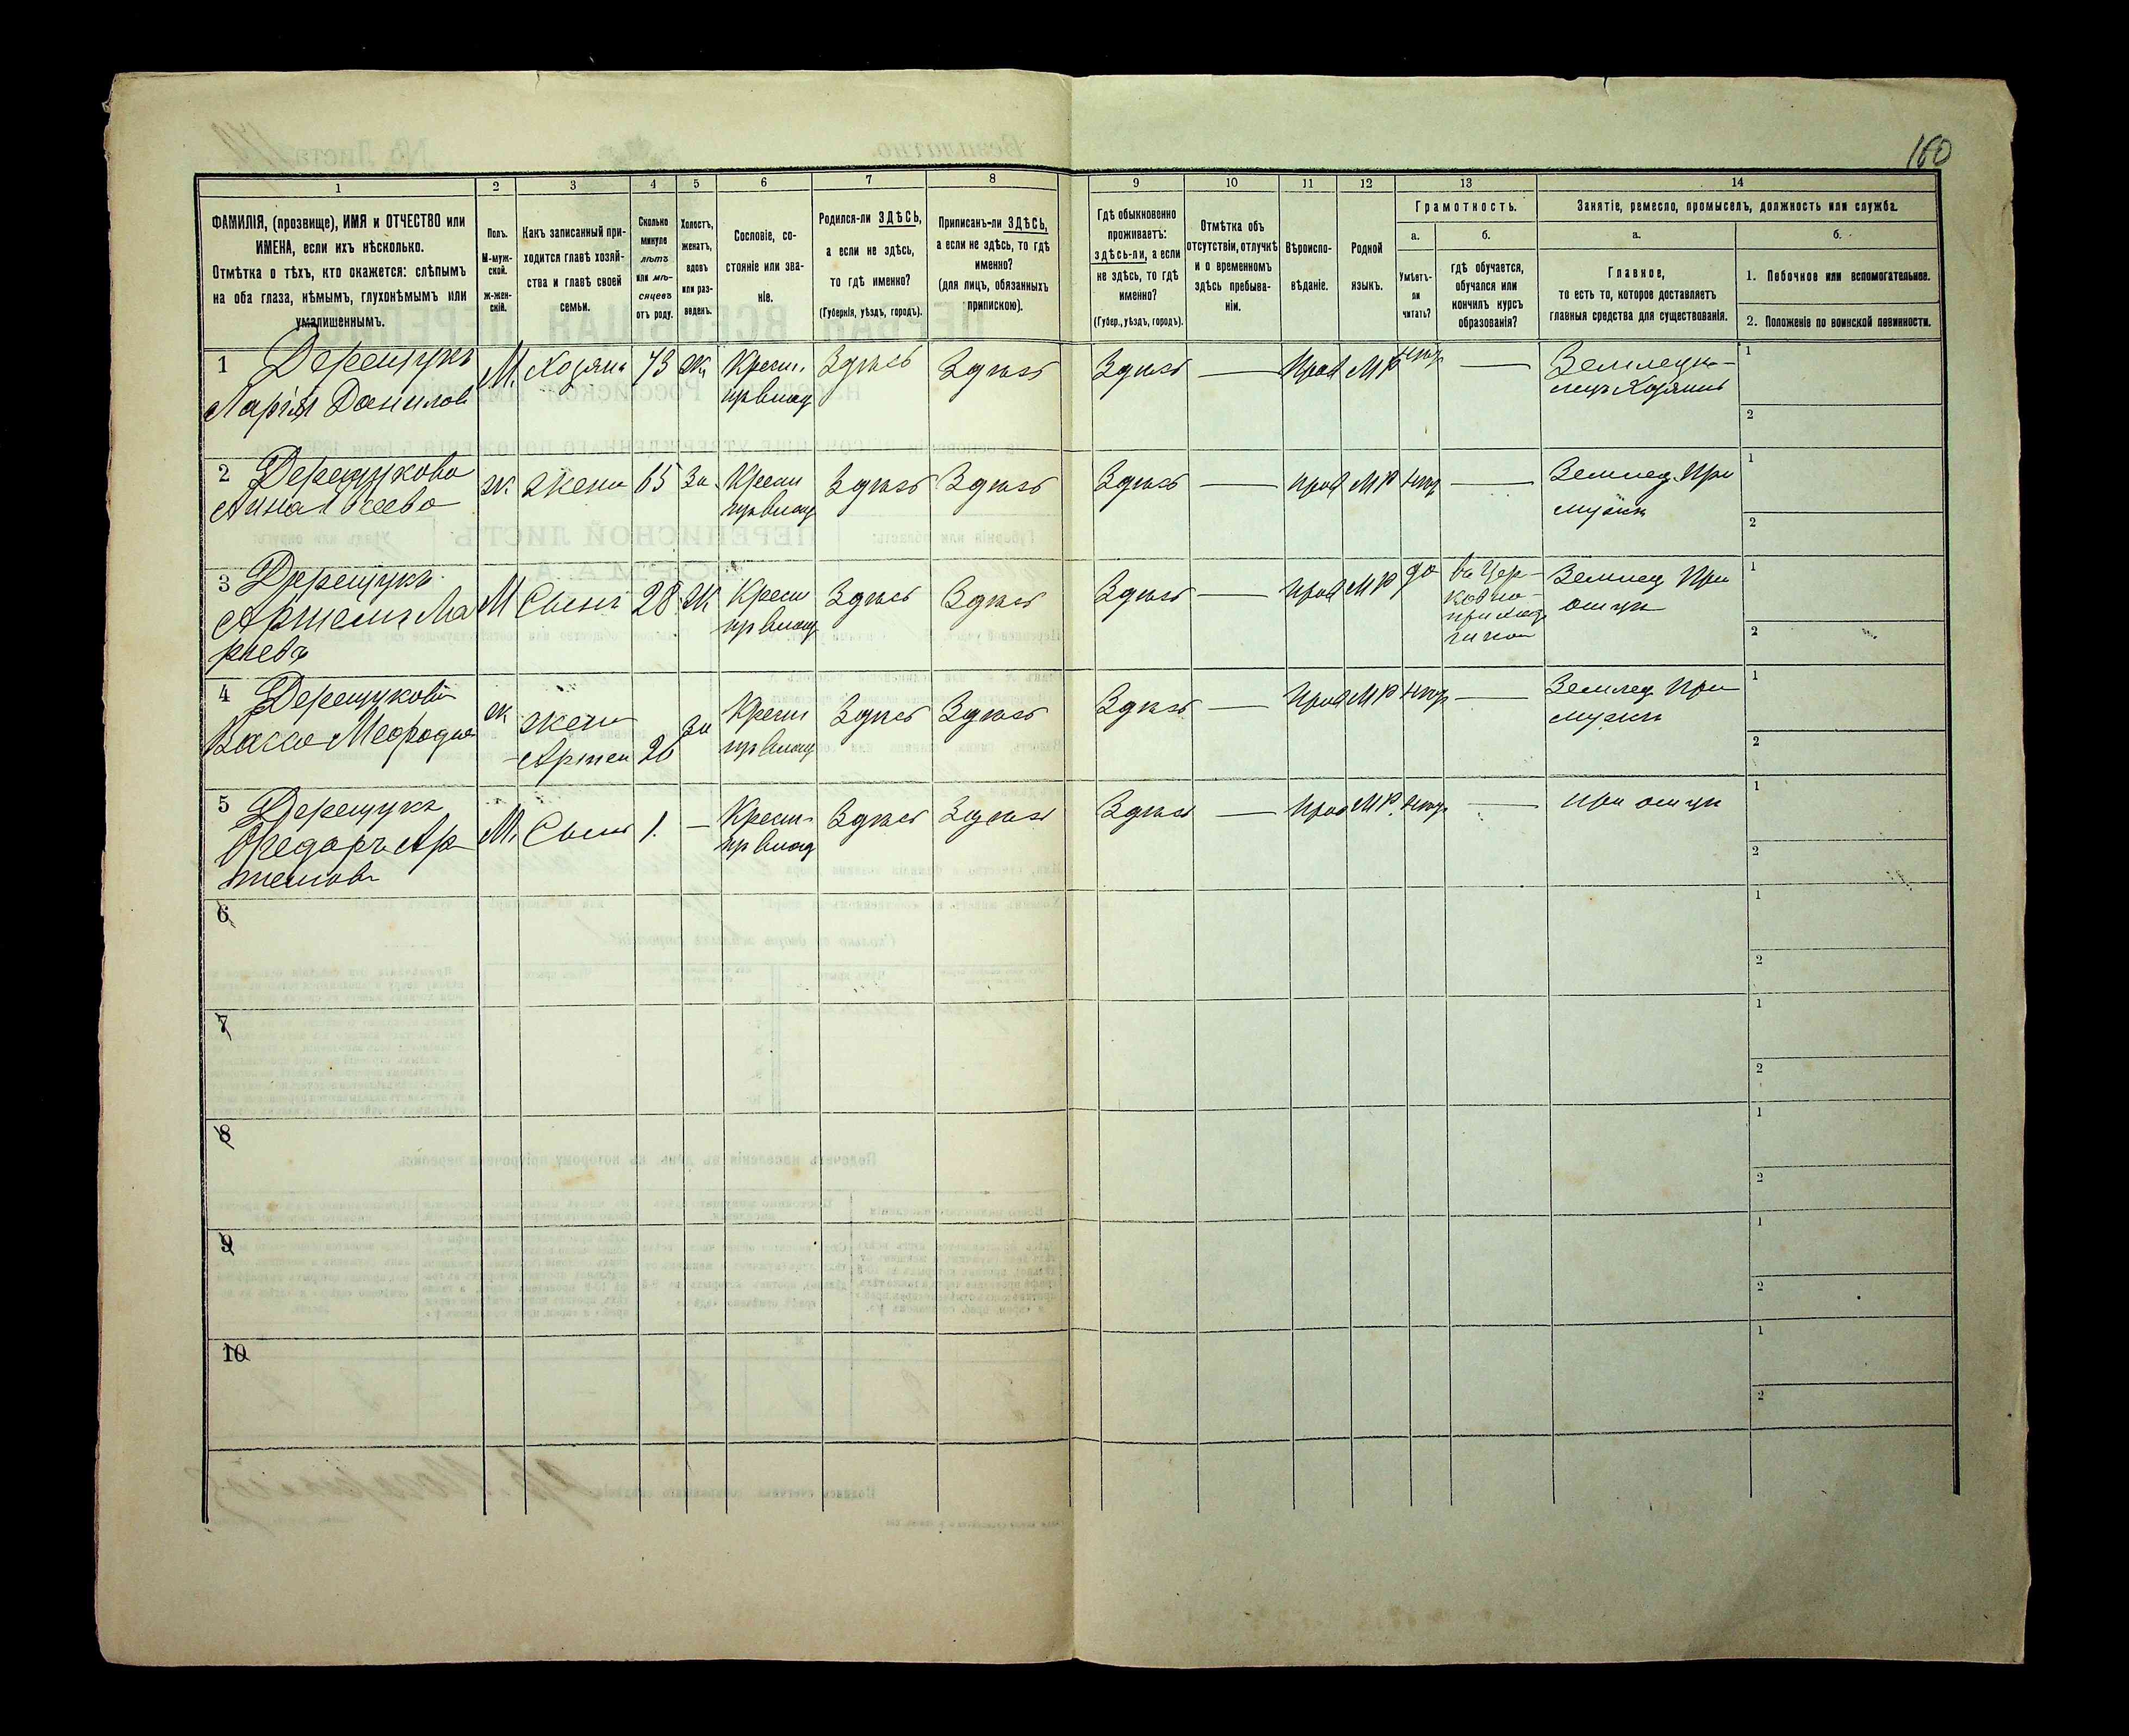 160
1 2 3 4 5 6 7 8 9 10 11 12 13 14
ФАМИЛІЯ, (прозвище), ИМЯ и ОТЧЕСТВО или
ИМЕНА, если ихъ нѣсколько.
Отмѣтка о тѣхъ, кто окажется: слѣпымъ
на оба глаза, нѣмымъ, глухонѣмымъ или
умалишеннымъ.
Полъ.
М-муж-
ской.
ж-жен-
скій.
Какъ записанный при-
ходится главѣ хозяй-
ства и главѣ своей
семьи.
Сколько
минуло
лѣтъ
или мѣ-
сяцевъ
отъ роду.
Холостъ,
женатъ,
вдовъ
или раз-
веденъ.
Сословіе, со-
стояніе или зва-
ніе.
Родился-ли ЗДѢСЬ,
а если не здѣсь,
то гдѣ именно?
(Губернія, уѣздъ, городъ).
Приписанъ-ли ЗДѢСЬ,
а если не здѣсь, то гдѣ
именно?
(для лицъ, обязанныхъ
припискою).
Гдѣ обыкновенно
проживаетъ:
здѣсь-ли, а если
не здѣсь, то гдѣ
именно?
(Губер., уѣздъ, городъ).
Отмѣтка объ
отсутствіи, отлучкѣ
и о временномъ
здѣсь пребыва-
ніи.
Вѣроиспо-
вѣданіе.
Родной
языкъ.
Грамотность.
а.
Умѣетъ-
ли
читать?
б.
гдѣ обучается,
обучался или
кончилъ курсъ
образованія?
Занятіе, ремесло, промыселъ, должность или служба.
а.
Главное,
то есть то, которое доставляетъ
главныя средства для существованія.
б.
1. Побочное или вспомогательное.
2. Положеніе по воинской повинности.
1 Дерещукъ М. Хозяин 73 Ж. Крест. Здѣсь Здѣсь Здѣсь — Прав МР нѣтъ — Земледѣ- 1
Ларіон Данилов из влад лецъ Хозяинъ
2
2 Дерещукова ж. жена 65 За. Крест Здѣсь Здѣсь Здѣсь — прав МР нѣтъ — Землед. При 1
Анна мужѣ
2
3 Дерещукъ М Сынъ 28 Ж Крест Здѣсь Здѣсь Здѣсь — прав МР да въ Цер- Землед При 1
Артемъ Ла отцѣ
ріевъ
2
4 Дерещукова ж жена за Крест Здѣсь Здѣсь Здѣсь — Прав МР нѣтъ — Землед При 1
Васса Артем 26 мужѣ
2
5 Дерещукъ М. Сынъ 1. — Крест. Здѣсь Здѣсь Здѣсь — Прав МР. нѣтъ — при отцѣ 1
Федоръ Ар-
темовъ
2
6 1
2
7 1
2
8 1
2
9 1
2
10 1
2